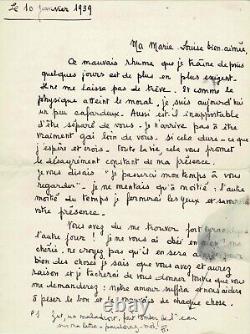 Le 10 janvier 1939
Ma Marie-Louise bien-aimée,
Ce mauvais rhume que je traîne depuis
quelques jours est de plus en plus exigent.
Il ne me laisse pas de trêve. Et comme le
physique atteint le moral, je suis aujourd'hui
un peu cafardeux. Aussi est-il insupportable
d'être séparé de vous. Je n'arrive pas à être
vraiment gai loin de vous, si cela dure - ce que
j'espère et crois - toute la vie, cela vous promet
le désagrément constant de ma présence.
Je vous disais "je passerai mon temps à vous
regarder" - je ne mentais qu'à moitié : l'autre
moitié du temps je fermerai les yeux et
votre présence.
Vous avez du me trouver fort
l'autre jour ! Je ne vous ai
chérie, ne croyez pas qu'il en sera
bien des choses je sais que vous avez
raison et je tâcherai de vous donner toute que vous
me demanderez : notre amour suffira et nous aidera
à peser le bon et le mauvais de chaque chose.
P.S. Zut, un maladroit fait tomber de l'eau
sur ma lettre - pardonnez-moi